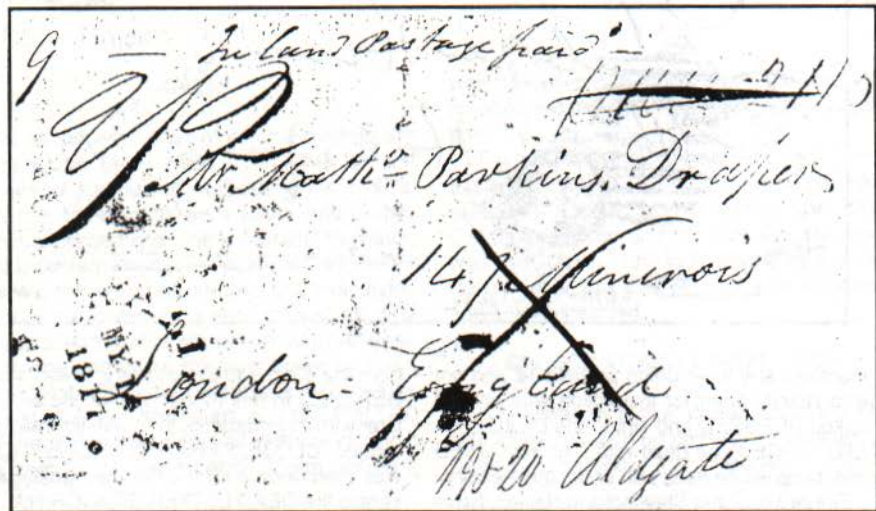 — Inland Postage paid —
Mr Matthw Parkins, Draper,
14 Minerois
London England
19+20 Aldgate
21
MY
18